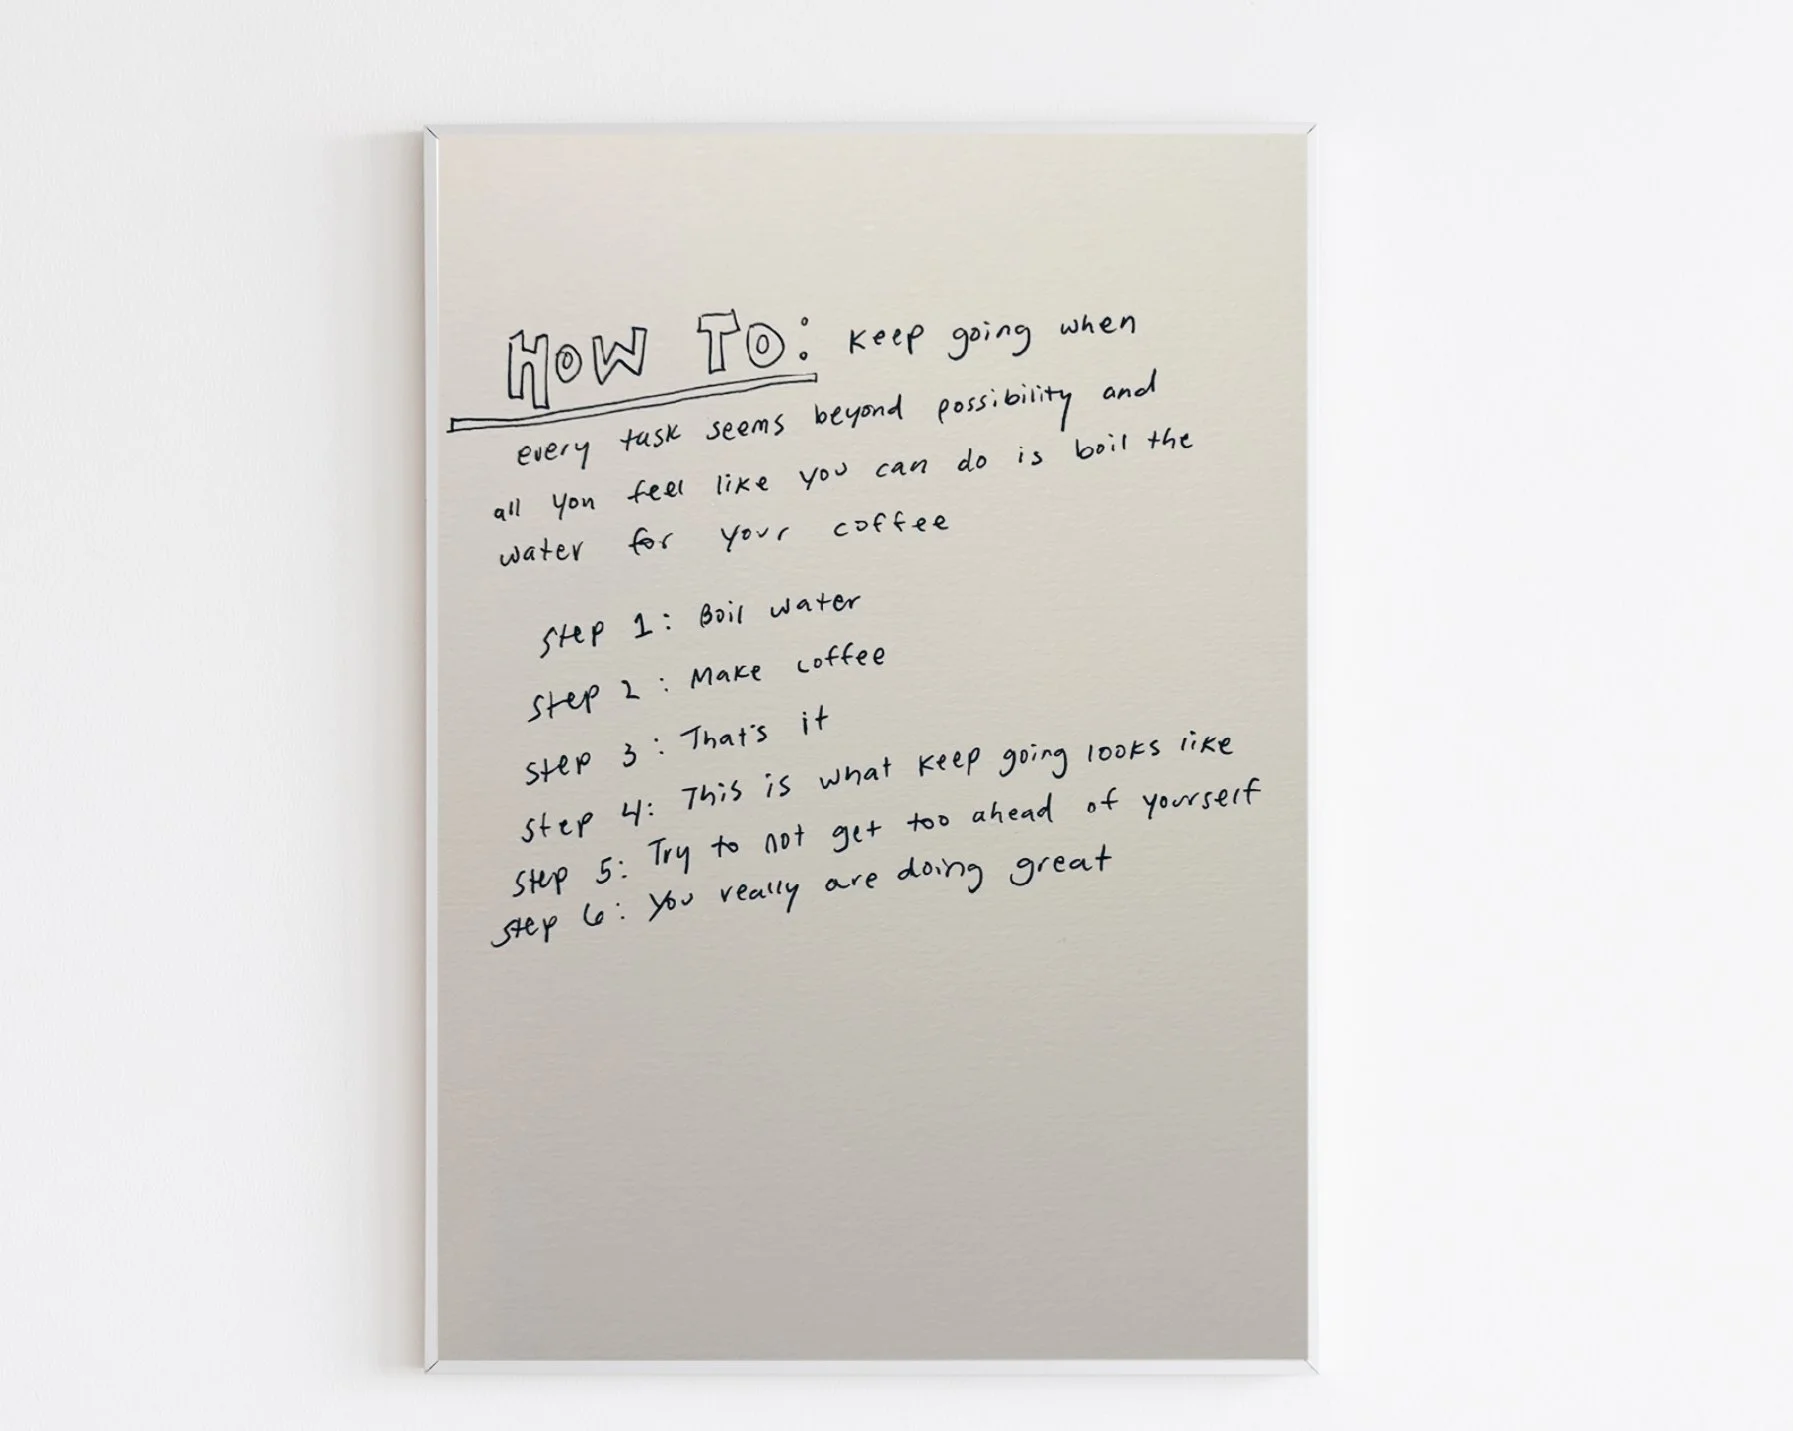 HOW TO: keep going when
every task seems beyond possibility and
all you feel like you can do is boil the
water for your coffee
Step 1: Boil water
Step 2: Make coffee
Step 3: That's it
Step 4: This is what keep going looks like
Step 5: Try to not get too ahead of yourself
Step 6: You really are doing great